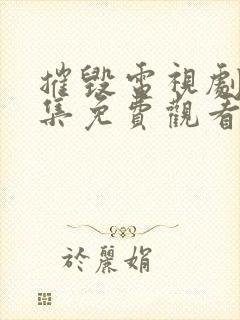 摧毀電視劇
集免費觀看
於麗娟